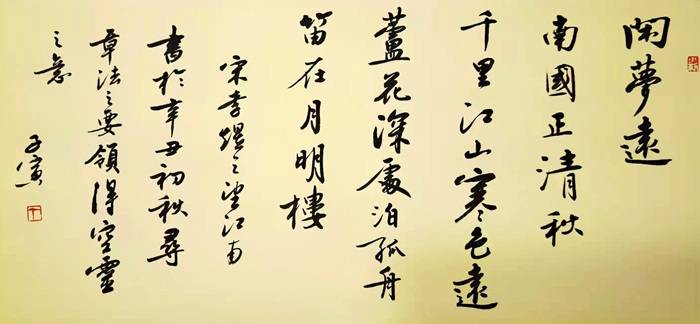 閑夢遠
南國正清秋
千里江山寒色遠
蘆花深處泊孤舟
笛在月明樓
宋李煜之望江南
書於辛丑初秋尋
章法之要領得空靈
之意
子寅